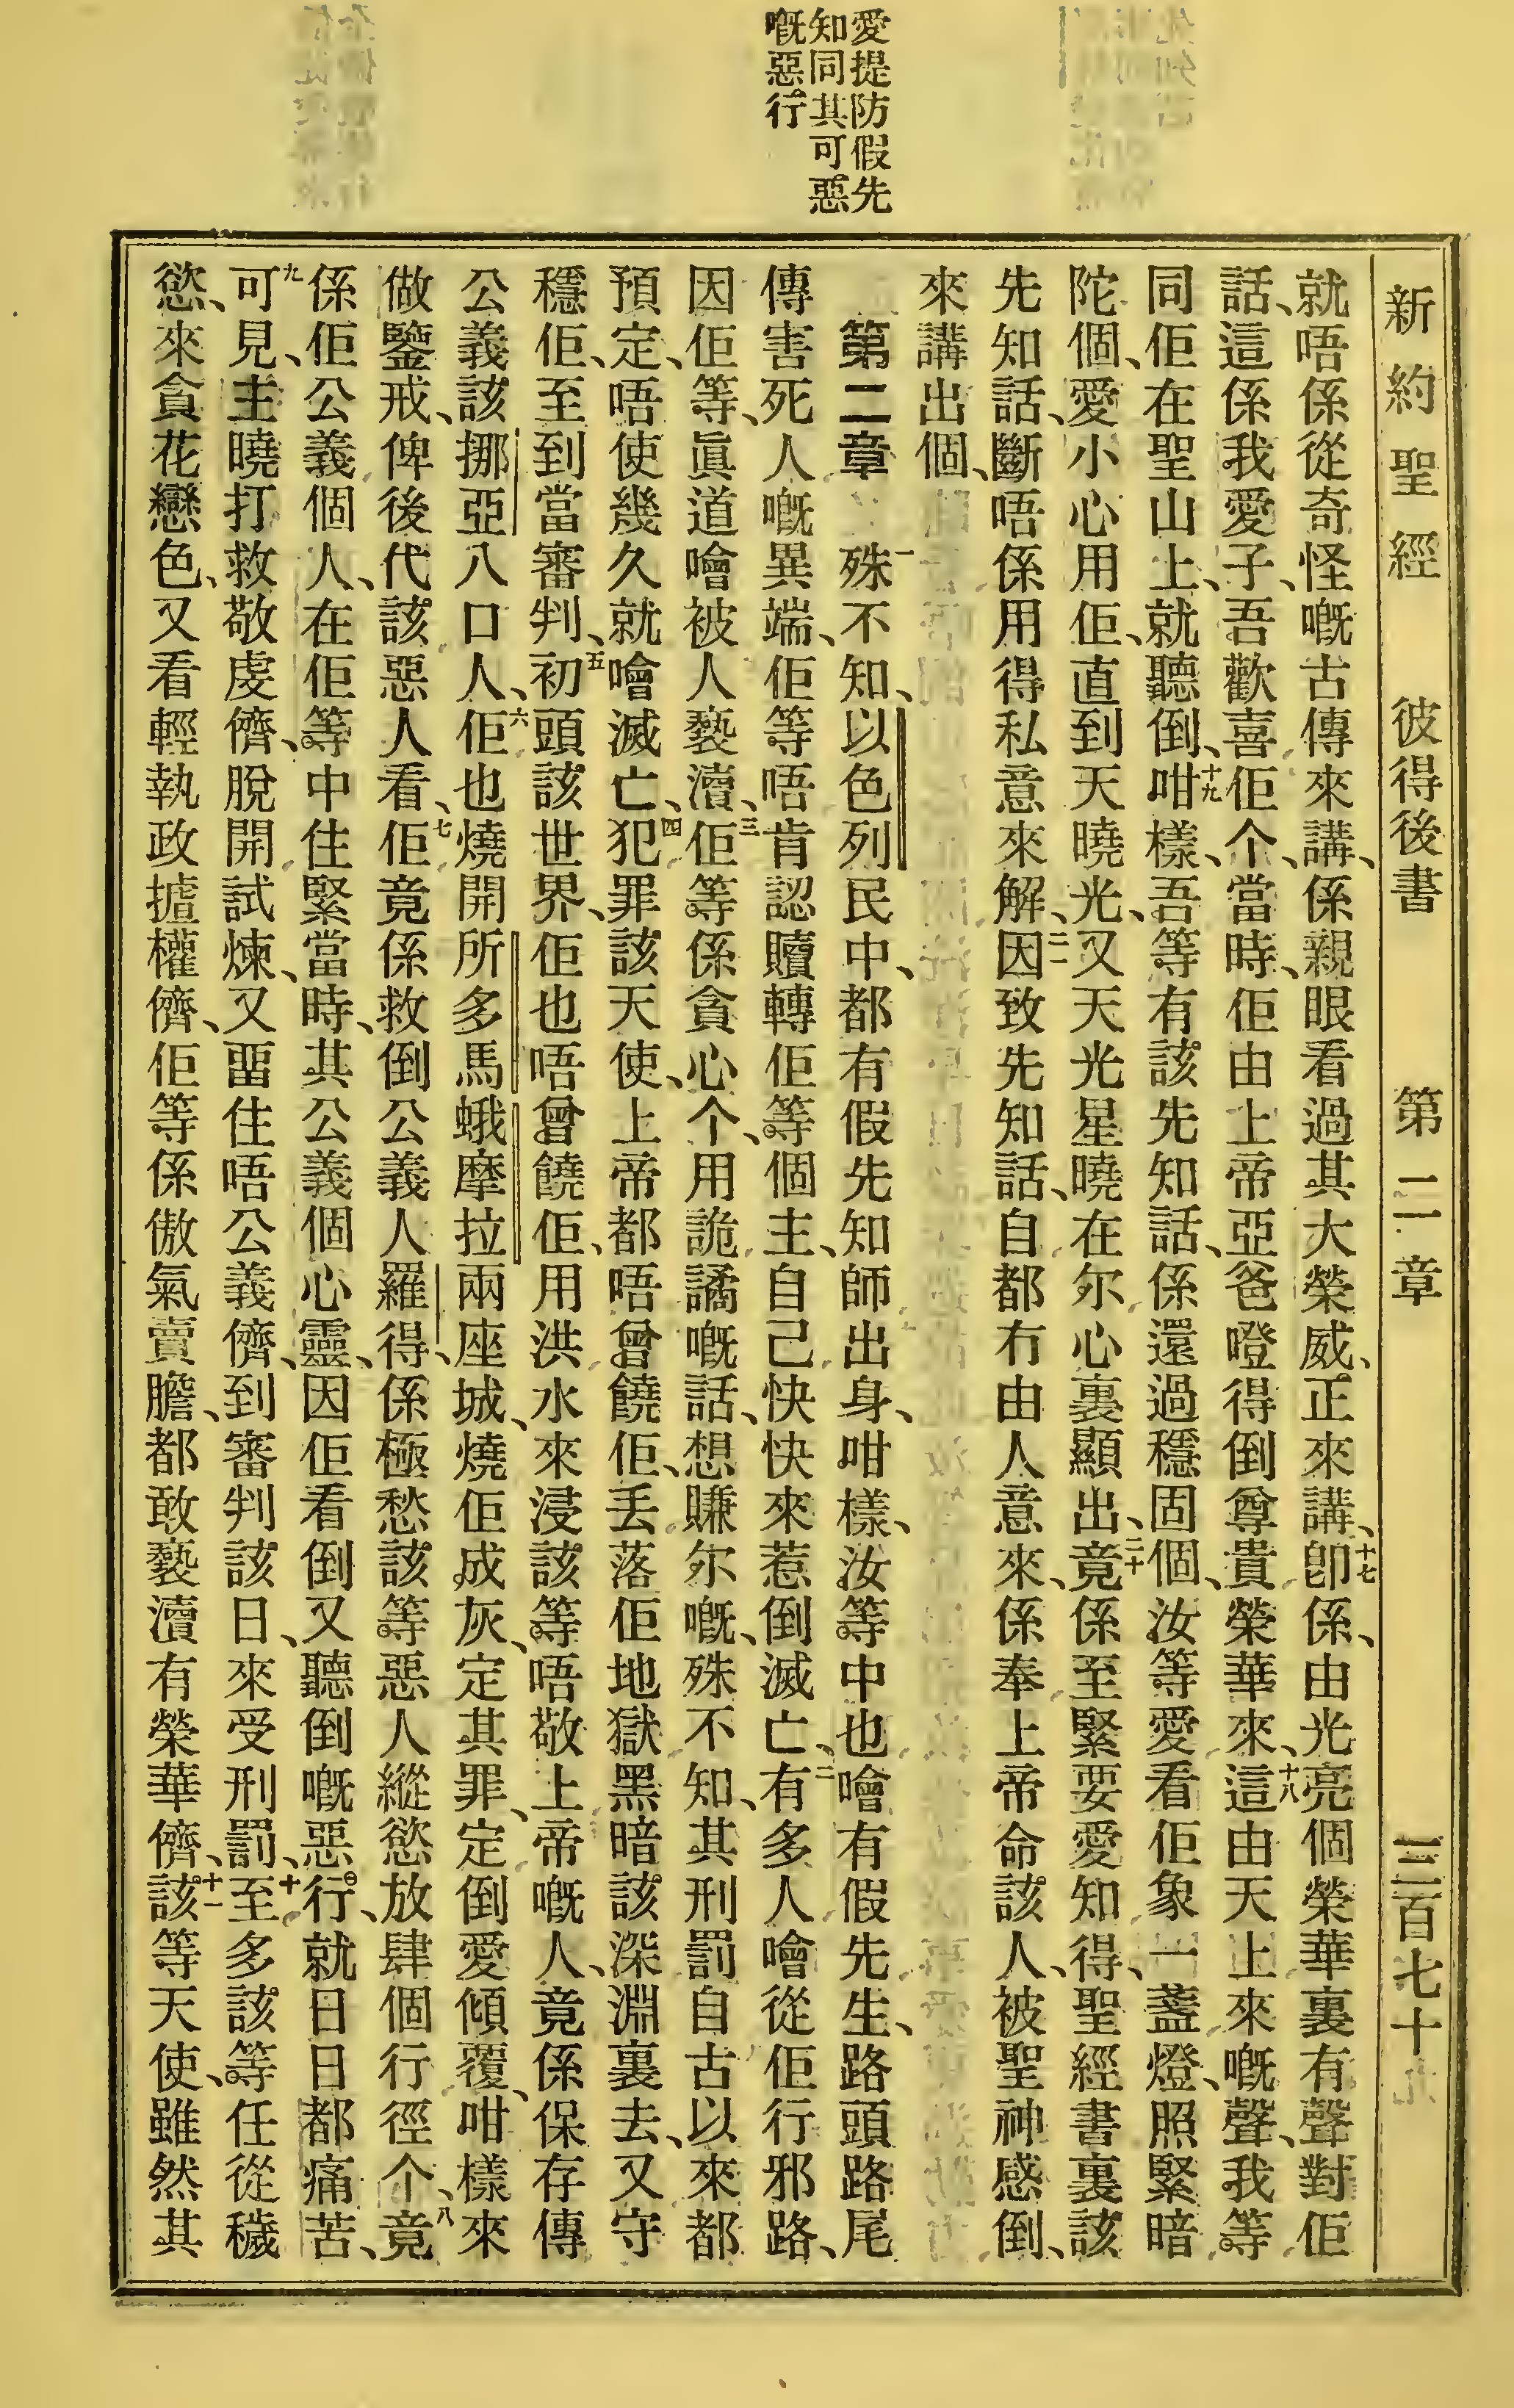 愛提防假先
知同其可惡
嘅惡行
新約聖經 彼得後書 第二章 三百七十九
就唔係從奇怪嘅古傳來講、係親眼看過其大榮威、正來講、十七卽係、由光亮個榮華裏有聲對佢
話、這係我愛子、吾歡喜佢个、當時、佢由上帝亞爸噔得倒尊貴榮華來、十八這由天上來嘅聲、我等
同佢在聖山上、就聽倒、十九咁樣、吾等有該先知話、係還過穩固個、汝等愛看佢象一盞燈、照緊暗
陀個、愛小心用佢、直到天曉光、又天光星曉在尔心裏顯出、二十竟係至緊要愛知得、聖經書裏該
先知話、斷唔係用得私意來解、二一因致先知話、自都冇由人意來、係奉上帝命該人、被聖神感倒、
來講出個、
第二章 一殊不知、以色列民中、都有假先知師出身、咁樣、汝等中也噲有假先生、路頭路尾
傳害死人嘅異端、佢等唔肯認贖轉佢等個主、自己快快來惹倒滅亡、二有多人噲從佢行邪路、
因佢等、眞道噲被人褻瀆、三佢等係貪心个、用詭譎嘅話、想賺尔嘅、殊不知、其刑罰自古以來都
預定、唔使幾久就噲滅亡、四犯罪該天使、上帝都唔曾饒佢、丢落佢地獄黑暗該深淵裏去、又守
穩佢、至到當審判、五初頭該世界、佢也唔曾饒佢、用洪水來浸該等唔敬上帝嘅人、竟係保存傳
公義該挪亞八口人、六佢也燒開所多馬蛾摩拉兩座城、燒佢成灰、定其罪、定倒愛傾覆、咁樣來
做鑒戒、俾後代該惡人看、七佢竟係救倒公義人羅得、係極愁該等惡人縱慾放肆個行徑个、八竟
係佢公義個人、在佢等中住緊當時、其公義個心靈、因佢看倒又聽倒嘅惡行、就日日都痛苦、
九可見、主曉打救敬虔儕、脫開試煉、又畱住唔公義儕、到審判該日、來受刑罰、十至多該等任從穢
慾、來貪花戀色、又看輕執政揸權儕、佢等係傲氣賣膽、都敢褻瀆有榮華儕、十一該等天使、雖然其